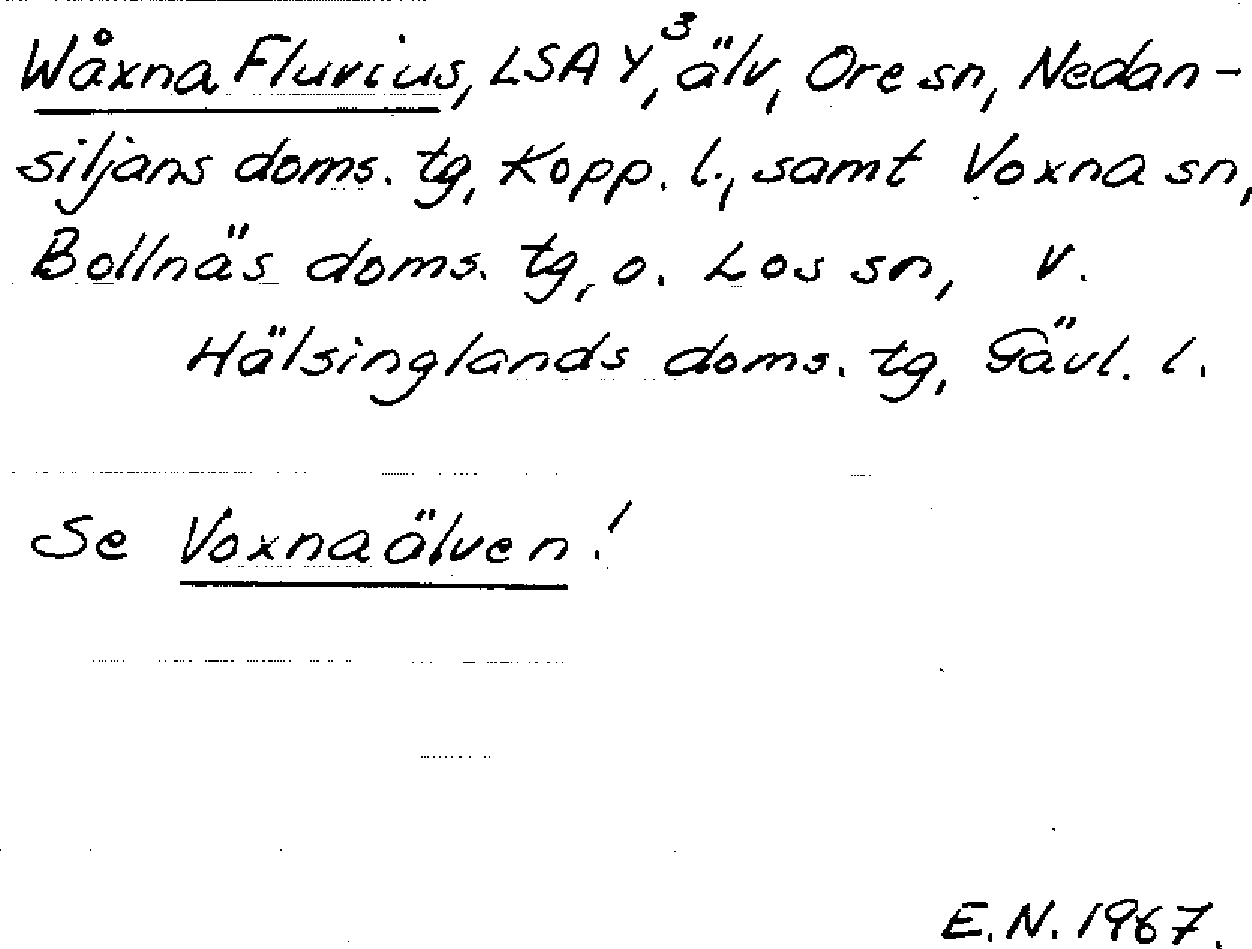 Wåxna Fluvius, LSA Y³, älv, Ore sn, Nedan-
siljans doms. tg, Kopp. l., samt Voxna sn,
Bollnäs doms. tg, o. Los sn, v.
Hälsinglands doms. tg, Gävl. l.
Se Voxnaälven!
E.N. 1967.